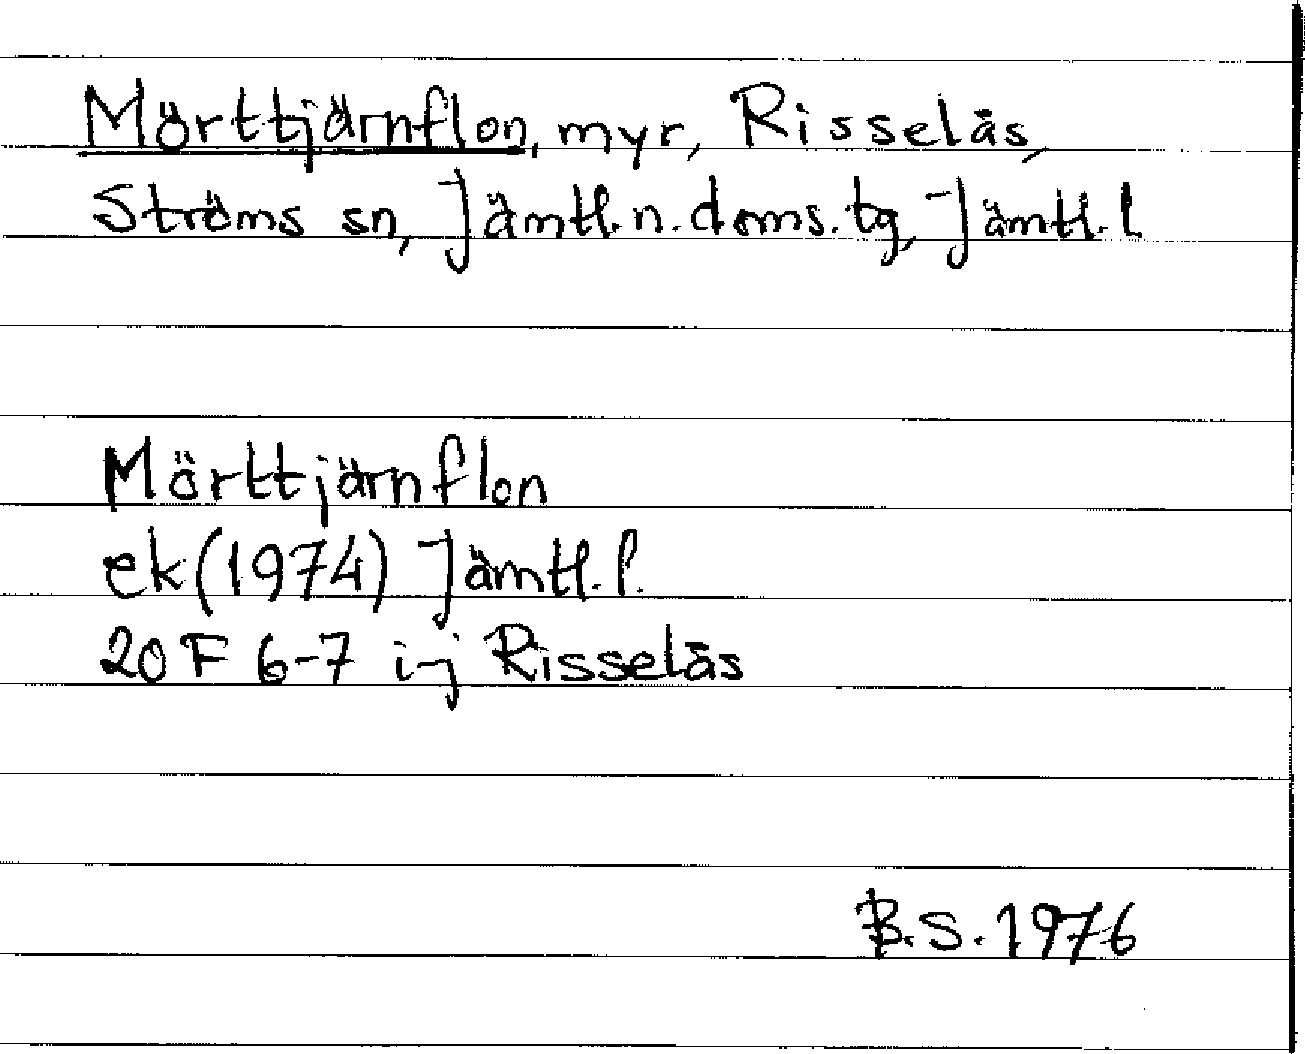 Mörttjärnflon, myr, Risselås,
Ströms sn, Jämtl.n.doms.tg, Jämtl.l
Mörttjärnflon
ek(1974) Jämtl.l.
20F 6-7 i-j Risselås
B.S.1976